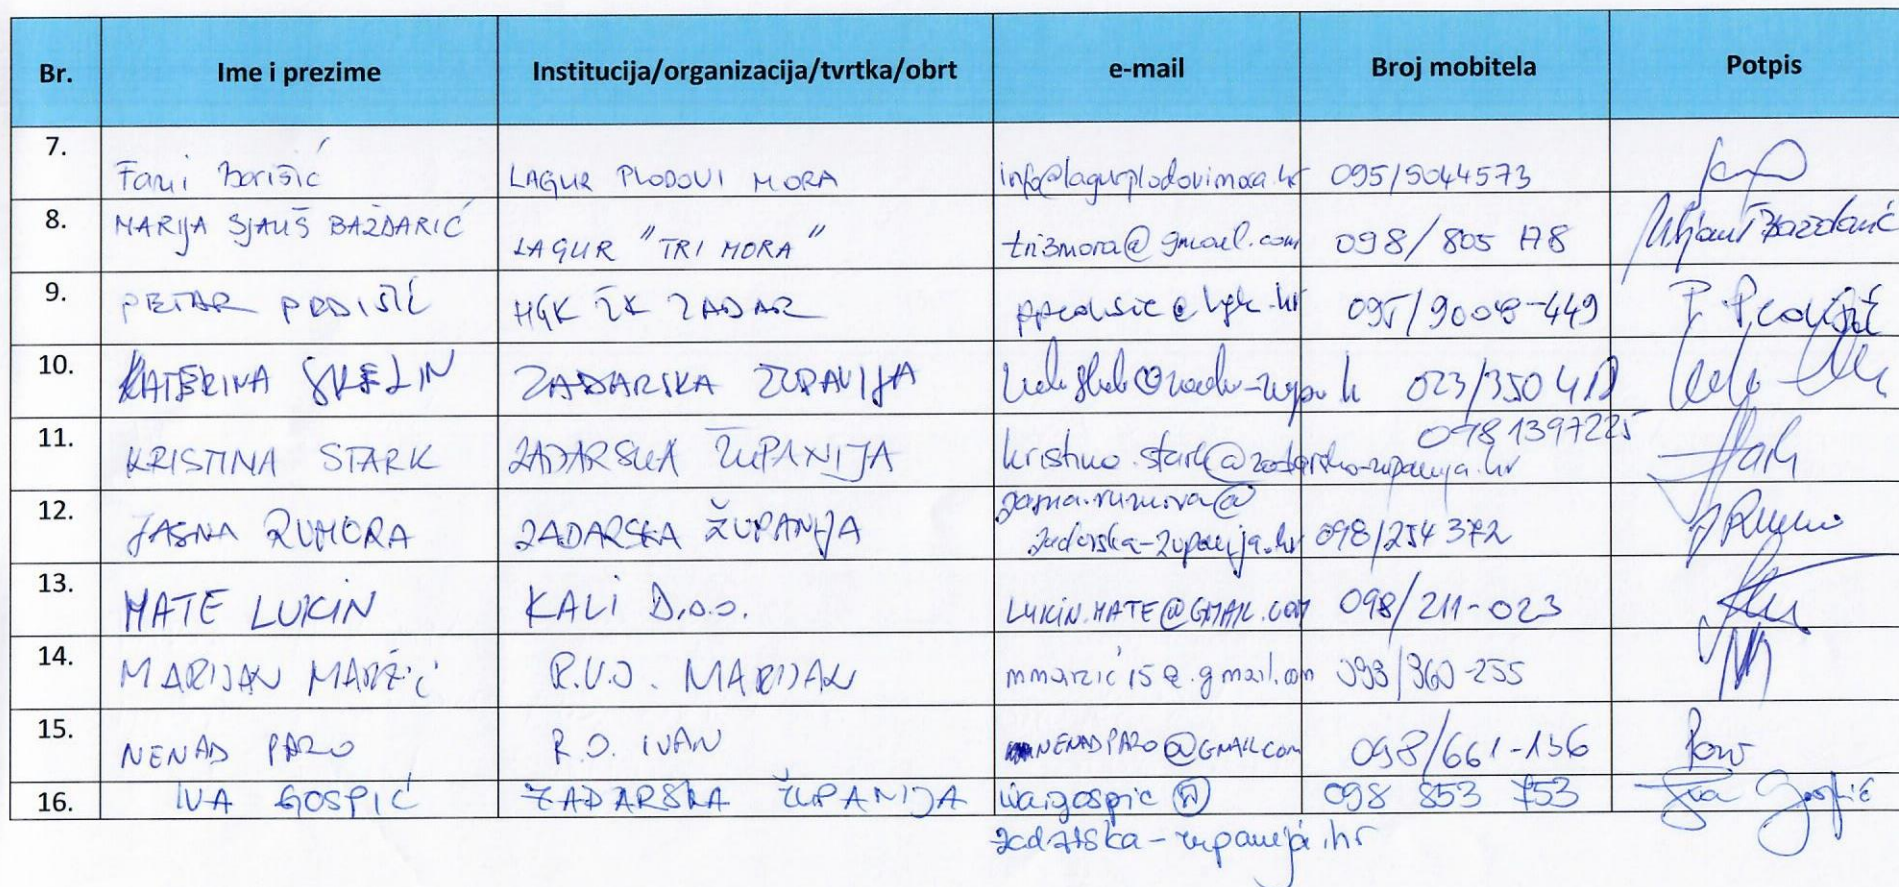 Br. Ime i prezime Institucija/organizacija/tvrtka/obrt e-mail Broj mobitela Potpis
7. Fani Borišić LAGUR PLODOVI MORA info@lagurplodovimora.hr 095/5044573
8. MARIJA SJAUŠ BAŽDARIĆ LAGUR "TRI MORA" tri3mora@gmail.com 098/805 178
9. PETAR HGK ŽK ZADAR 095/9008-449
10. KATERINA SKELIN ZADARSKA ŽUPANIJA
0981397225
11. KRISTINA STARK ZADARSKA ŽUPANIJA kristina.stark@zadarska-zupanija.hr Stark
jasna.rumora@
12. JASNA RUMORA ZADARSKA ŽUPANIJA zadarska-zupanija.hr 098/254 372
13. MATE LUKIN KALI D.o.o. LUKIN.MATE@GMAIL.COM 098/211-023
14. MARIJAN MARŽIĆ R.U.O. MARIJAN mmarzic15@.gmail.com 098/360-255
15. NENAD PAZO R.O. IVAN NENADPAZO@GMAIL.COM 098/661-136
16. IVA GOSPIĆ ZADARSKA ŽUPANIJA iva.gospic@ 098 853 753 Iva Gospić
zadarska-zupanija.hr